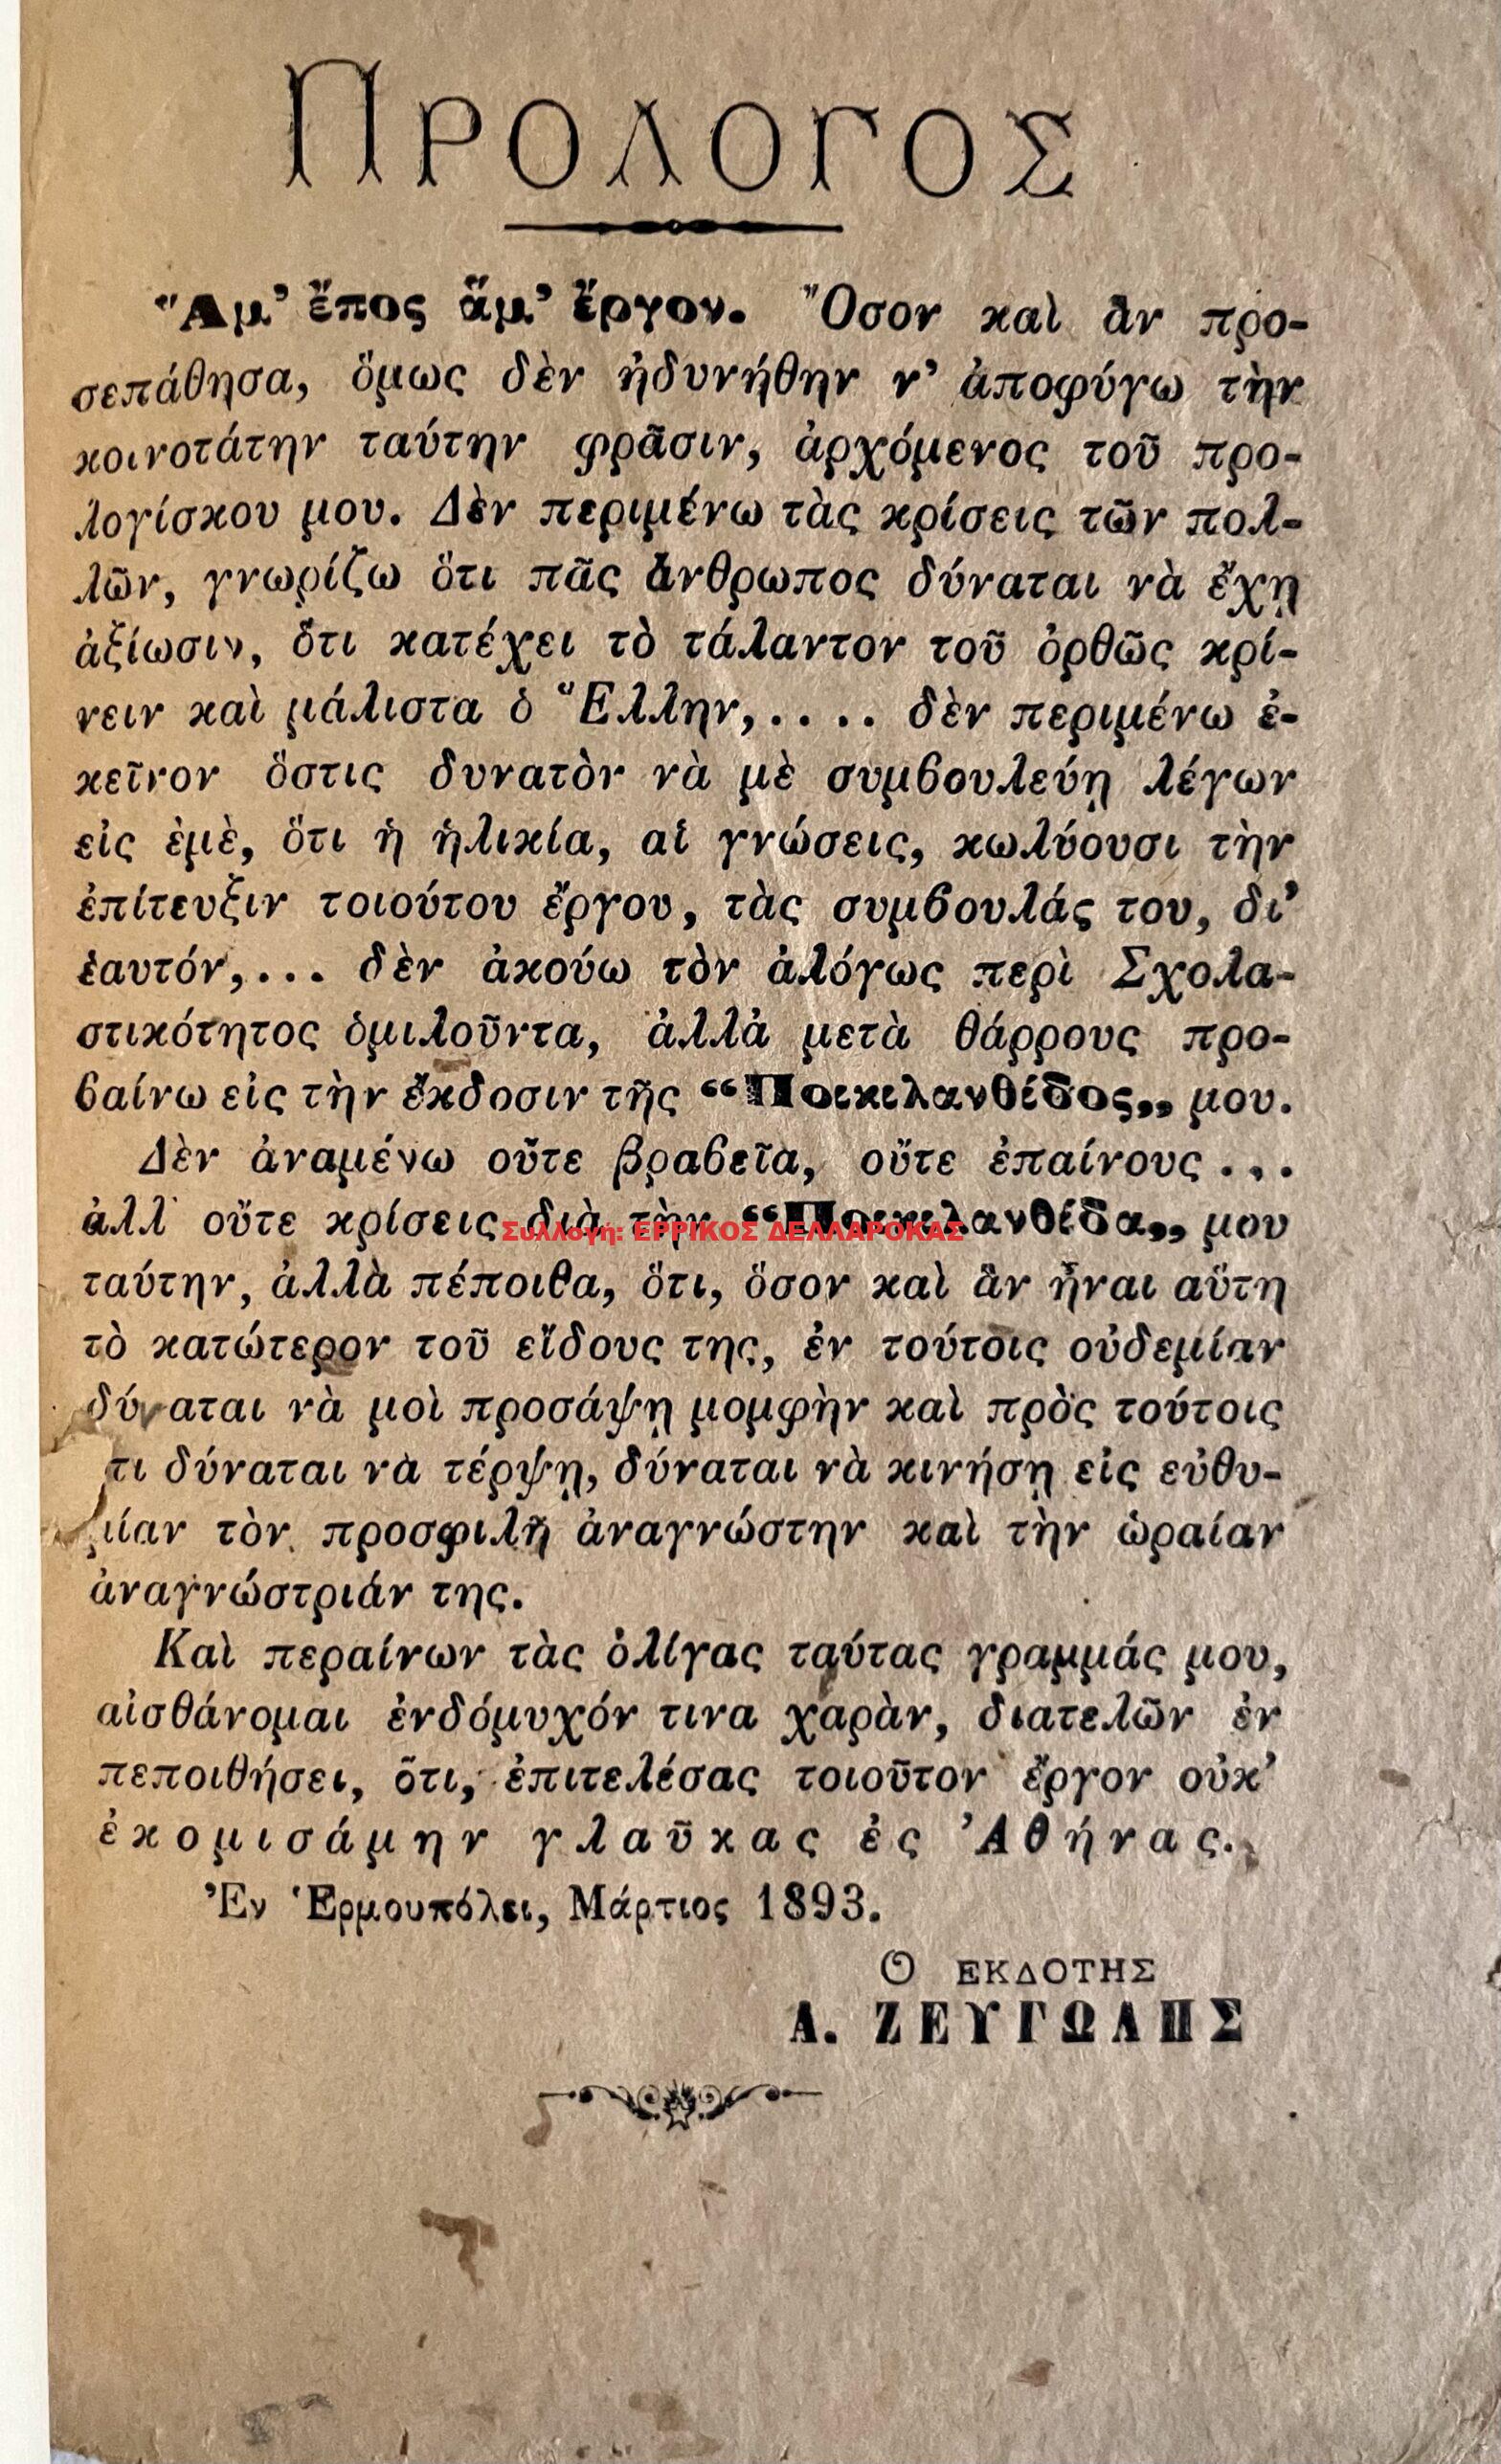 ΠΡΟΛΟΓΟΣ
Ἅμ' ἔπος ἅμ' ἔργον. Ὅσον καὶ ἂν προ-
σεπάθησα, ὅμως δὲν ἠδυνήθην ν' ἀποφύγω τὴν
κοινοτάτην ταύτην φρᾶσιν, ἀρχόμενος τοῦ προ-
λογίσκου μου. Δὲν περιμένω τὰς κρίσεις τῶν πολ-
λῶν, γνωρίζω ὅτι πᾶς ἄνθρωπος δύναται νὰ ἔχῃ
ἀξίωσιν, ὅτι κατέχει τὸ τάλαντον τοῦ ὀρθῶς κρί-
νειν καὶ μάλιστα ὁ Ἕλλην,.... δὲν περιμένω ἐ-
κεῖνον ὅστις δυνατὸν νὰ μὲ συμβουλεύῃ λέγων
εἰς ἐμὲ, ὅτι ἡ ἡλικία, αἱ γνώσεις, κωλύουσι τὴν
ἐπίτευξιν τοιούτου ἔργου, τὰς συμβουλάς του, δι'
ἑαυτόν,... δὲν ἀκούω τὸν ἀλόγως περὶ Σχολα-
στικότητος ὁμιλοῦντα, ἀλλὰ μετὰ θάρρους προ-
βαίνω εἰς τὴν ἔκδοσιν τῆς “Ποικιλανθίδος,, μου.
Δὲν ἀναμένω οὔτε βραβεῖα, οὔτε ἐπαίνους ...
ἀλλ' οὔτε κρίσεις διὰ τὴν “Ποικιλανθίδα,, μου
Συλλογή: ΕΡΡΙΚΟΣ ΔΕΛΛΑΡΟΚΑΣ
ταύτην, ἀλλὰ πέποιθα, ὅτι, ὅσον καὶ ἂν ἦναι αὕτη
τὸ κατώτερον τοῦ εἴδους της, ἐν τούτοις οὐδεμίαν
δύναται νὰ μοὶ προσάψῃ μομφὴν καὶ πρὸς τούτοις
τι δύναται νὰ τέρψῃ, δύναται νὰ κινήσῃ εἰς εὐθυ-
μίαν τὸν προσφιλῆ ἀναγνώστην καὶ τὴν ὡραίαν
ἀναγνώστριάν της.
Καὶ περαίνων τὰς ὀλίγας ταύτας γραμμάς μου,
αἰσθάνομαι ἐνδόμυχόν τινα χαρὰν, διατελῶν ἐν
πεποιθήσει, ὅτι, ἐπιτελέσας τοιοῦτον ἔργον οὐκ'
ἐκομισάμην γλαῦκας ἐς Ἀθήνας.
Ἐν Ἑρμουπόλει, Μάρτιος 1893.
Ο ΕΚΔΟΤΗΣ
Α. ΖΕΥΓΩΛΗΣ